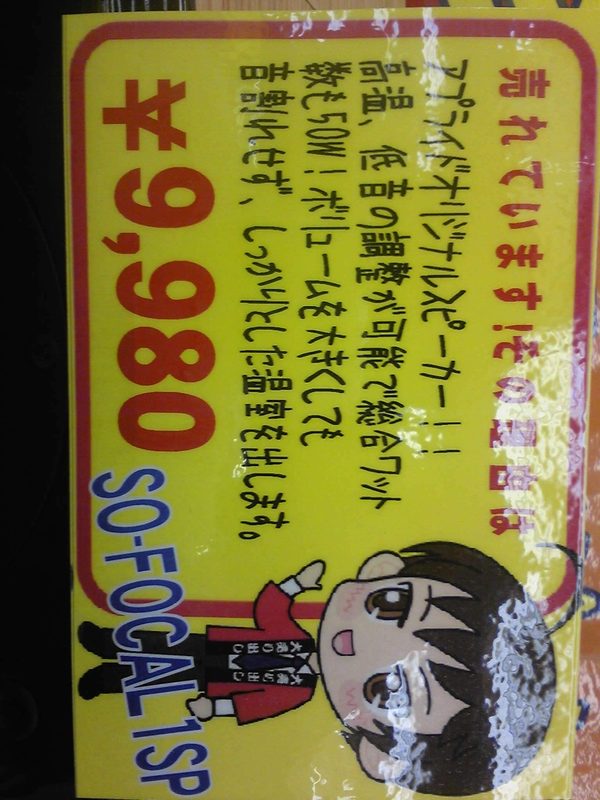 売れています!その理由は
アプライドオリジナルスピーカー!!
高温、低音の調整が可能で総合ワット
数も50W!ボリュームを大きくしても
音割れせず、しっかりとした温室を出します。
¥9,980
SO-FOCAL1SP
大売り出し
大売り出し